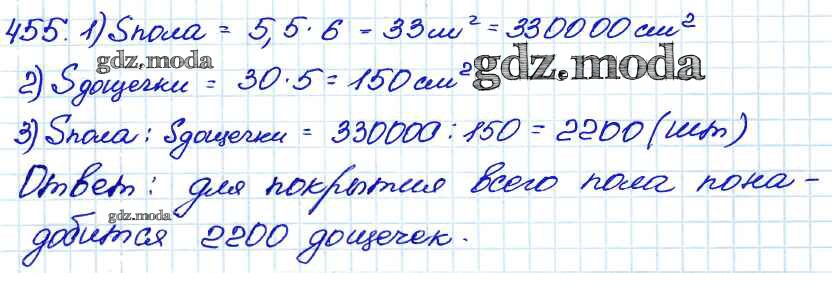 455. 1) Sпола = 5,5·6 = 33 м² = 330000 см²
gdz.moda
2) Sдощечки = 30·5 = 150 см² gdz.moda
3) Sпола : Sдощечки = 330000 : 150 = 2200 (шт)
Ответ: для покрытия всего пола пона-
gdz.moda
добится 2200 дощечек.